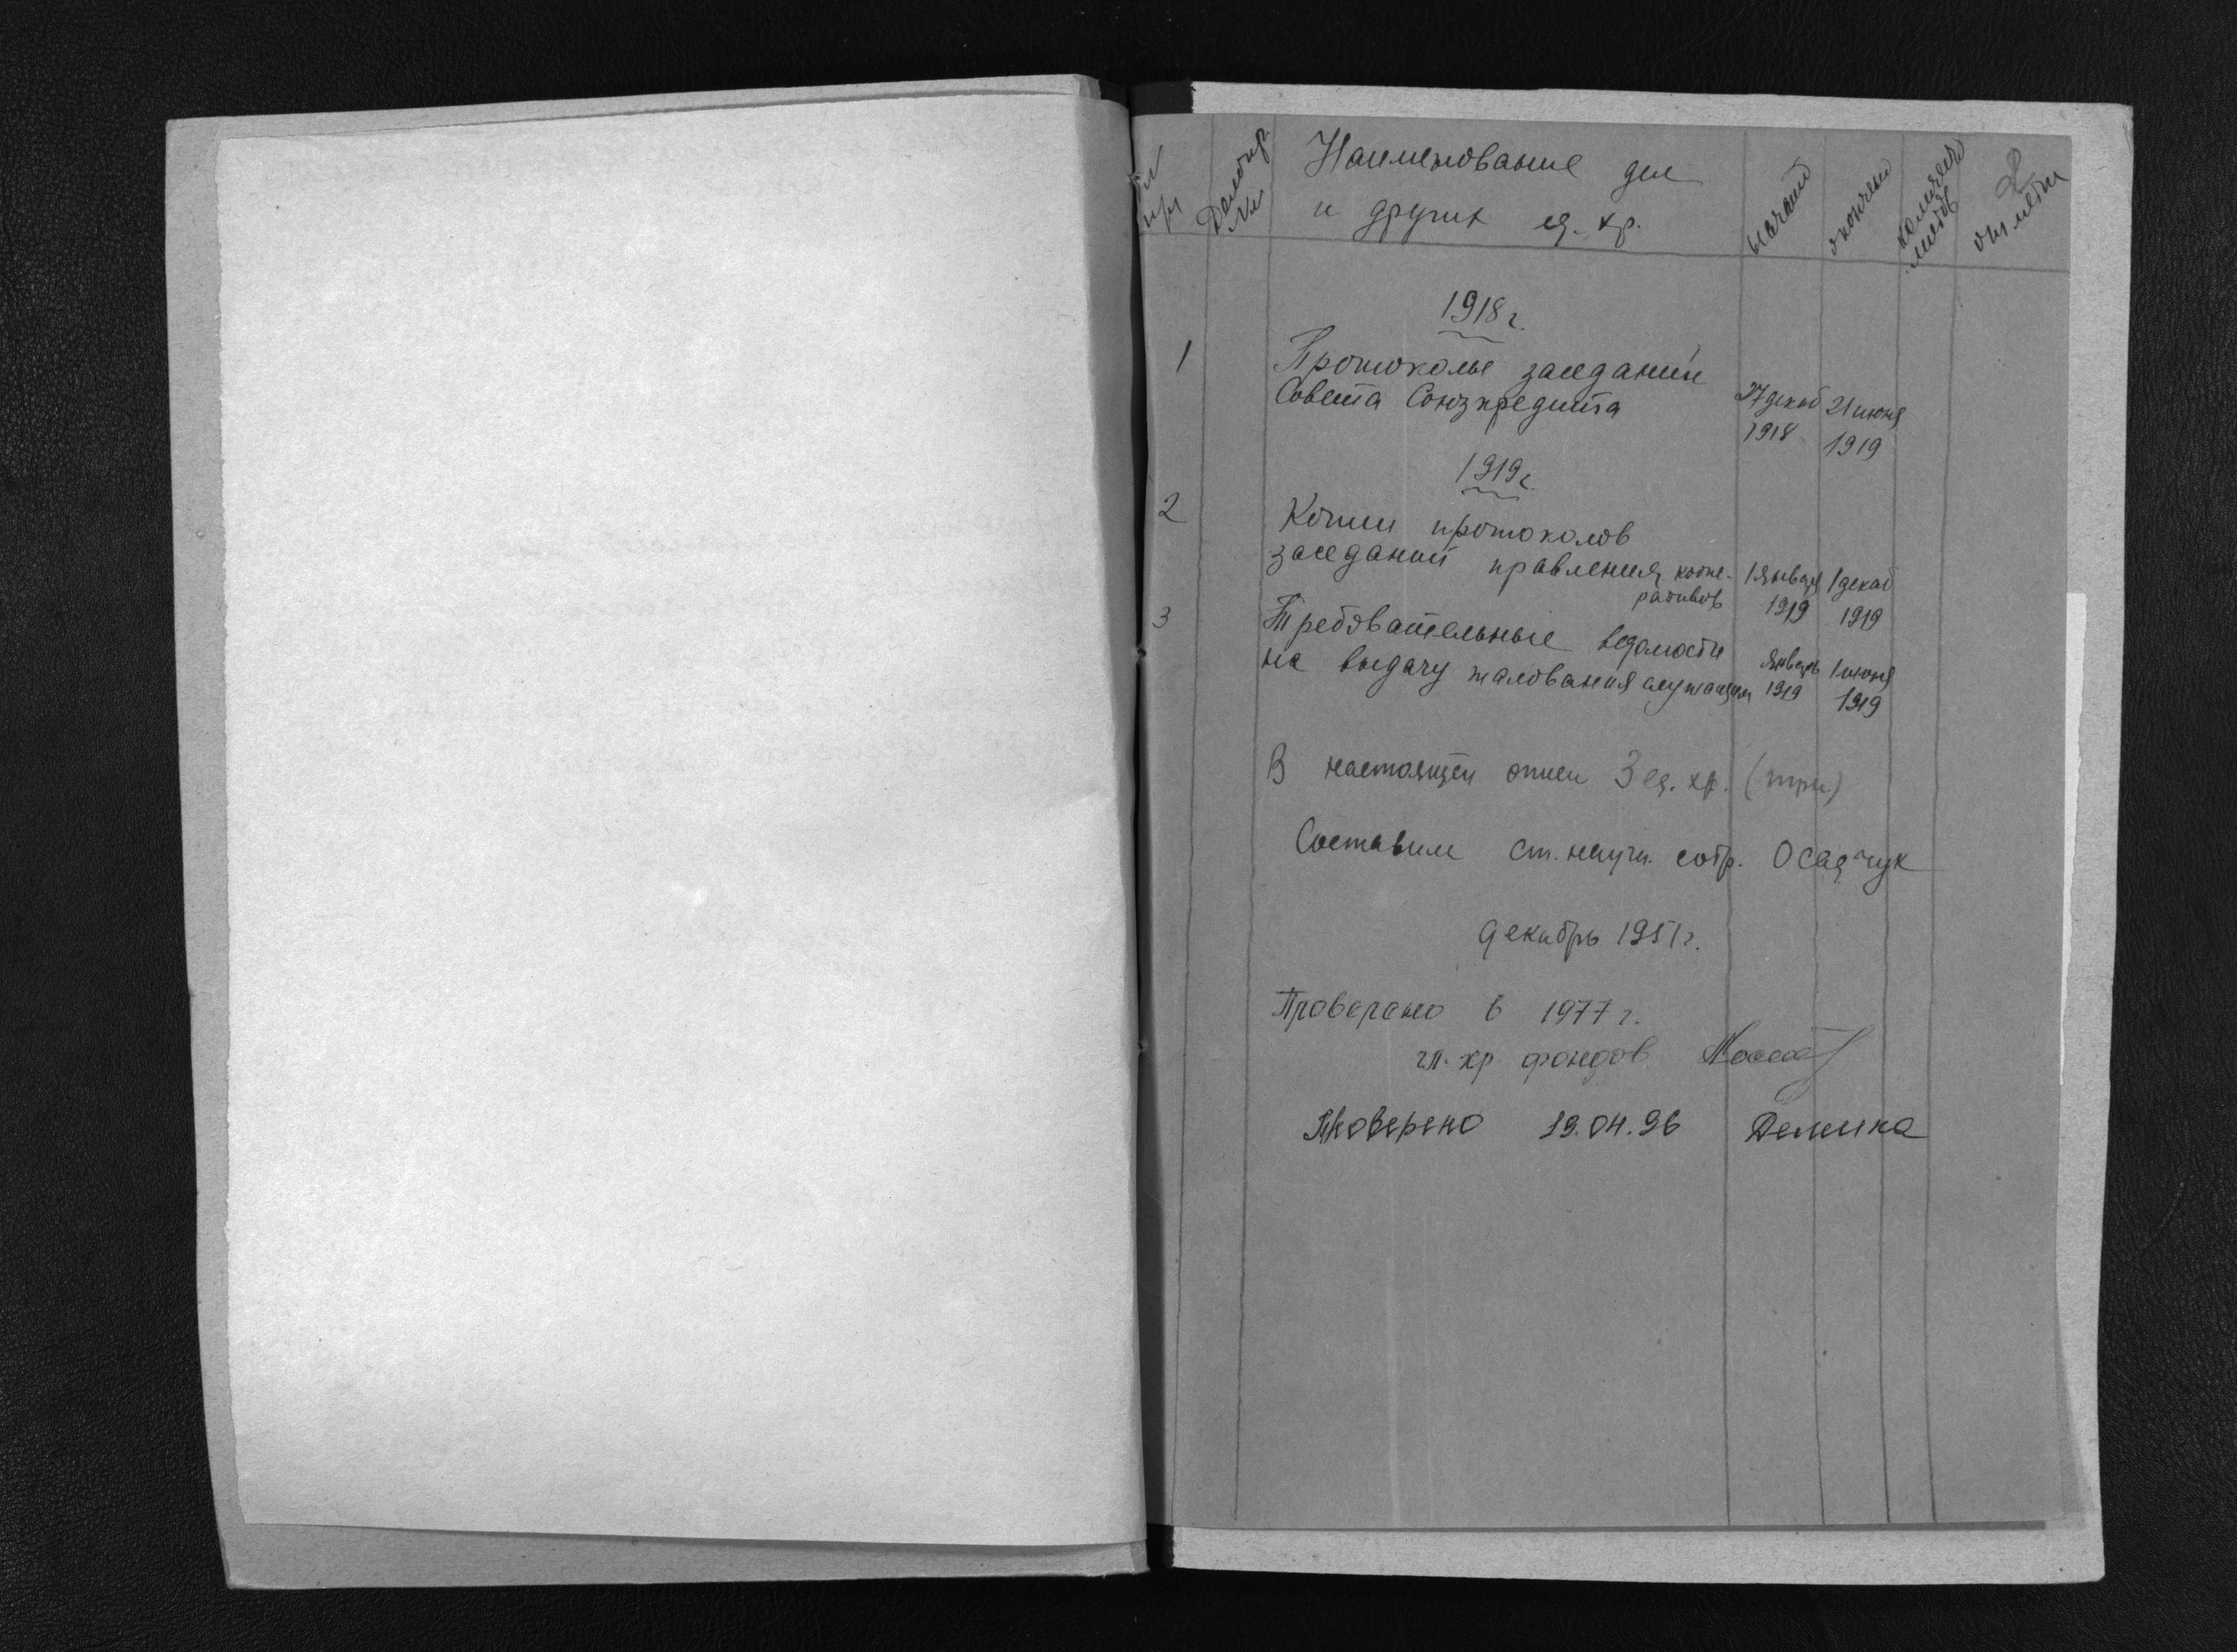 2
№№ п/п
Делопр. №№
Наименование дел
и других ед. хр.
начато
окончено
количест. листов
отметки
1918 г.
1
Протоколы заседаний
Совета Союзкредита
27 декаб 1918
21 июня 1919
1919 г.
2
Копии протоколов
заседаний правления коопе-
ративов
1 января 1919
1 декаб 1919
3
Требовательные ведомости
на выдачу жалования служащим
январь 1919
1 июня 1919
В настоящей описи 3 ед. хр. (три)
Составил ст. научн. сотр. Осадчук
декабрь 1951 г.
Проверено в 1977 г.
гл. хр. фондов
Проверено 19.04.96 Демина